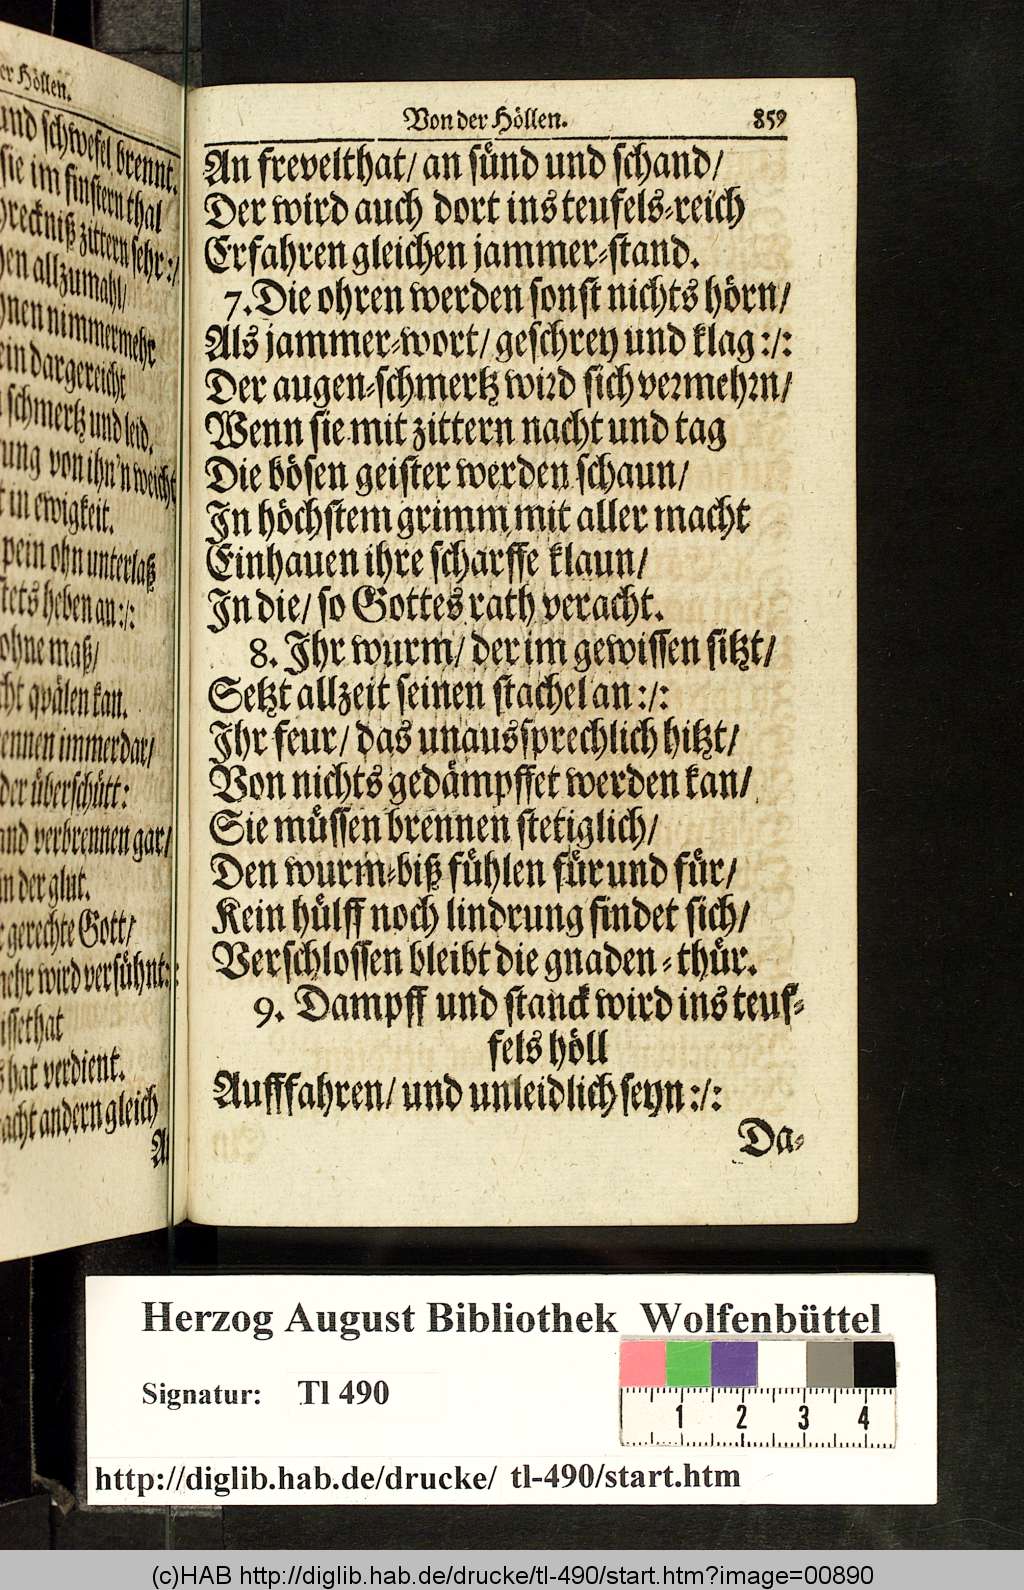 er Höllen.
und schwefel brennt.
sie im finstern thal
schreckniß zittern sehr:/
allzumahl/
nimmermehr
dargereicht
schmertz und leid.
von ihn'n weicht
in ewigkeit.
pein ohn unterlaß
stets heben an:/:
ohne maß/
qvälen kan.
brennen immerdar/
überschütt:
und verbrennen gar/
in der glut.
gerechte Gott/
mehr wird versühnt:/:
missethat
hat verdient.
andern gleich
A
Von der Höllen. 859
An frevelthat/ an sünd und schand/
Der wird auch dort ins teufels-reich
Erfahren gleichen jammer-stand.
7. Die ohren werden sonst nichts hörn/
Als jammer-wort/ geschrey und klag:/:
Der augen-schmertz wird sich vermehrn/
Wenn sie mit zittern nacht und tag
Die bösen geister werden schaun/
In höchstem grimm mit aller macht
Einhauen ihre scharffe klaun/
In die/ so Gottes rath veracht.
8. Ihr wurm/ der im gewissen sitzt/
Setzt allzeit seinen stachel an:/:
Ihr feur/ das unaussprechlich hitzt/
Von nichts gedämpffet werden kan/
Sie müssen brennen stetiglich/
Den wurm-biß fühlen für und für/
Kein hülff noch lindrung findet sich/
Verschlossen bleibt die gnaden-thür.
9. Dampff und stanck wird ins teuf-
fels höll
Aufffahren/ und unleidlich seyn:/:
Da-
Herzog August Bibliothek Wolfenbüttel
Signatur: Tl 490
1 2 3 4
http://diglib.hab.de/drucke/ tl-490/start.htm
(c)HAB http://diglib.hab.de/drucke/tl-490/start.htm?image=00890